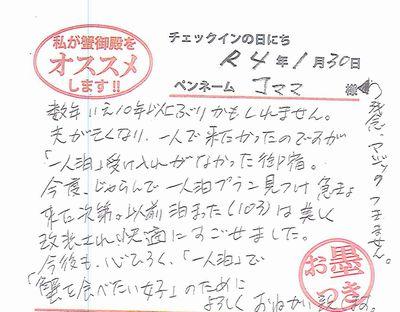 私が蟹御殿を
オススメ
します!!
チェックインの日にち
R4年1月30日
ペンネーム コママ 様
数年いえ10年以上ぶりかもしれません。
夫が亡くなり、一人で来たかったのですが
「一人泊」受け入れがなかった御宿。
今度、じゃらんで一人泊プラン見つけ急きょ
来た次第。以前泊まった(103)は美しく
改装され、快適にすごせました。
今後も、心ひろく、「一人泊」で
「蟹を食べたい女子」のために
よろしくおねがい致
残念、マジックつきません。
お墨
つき